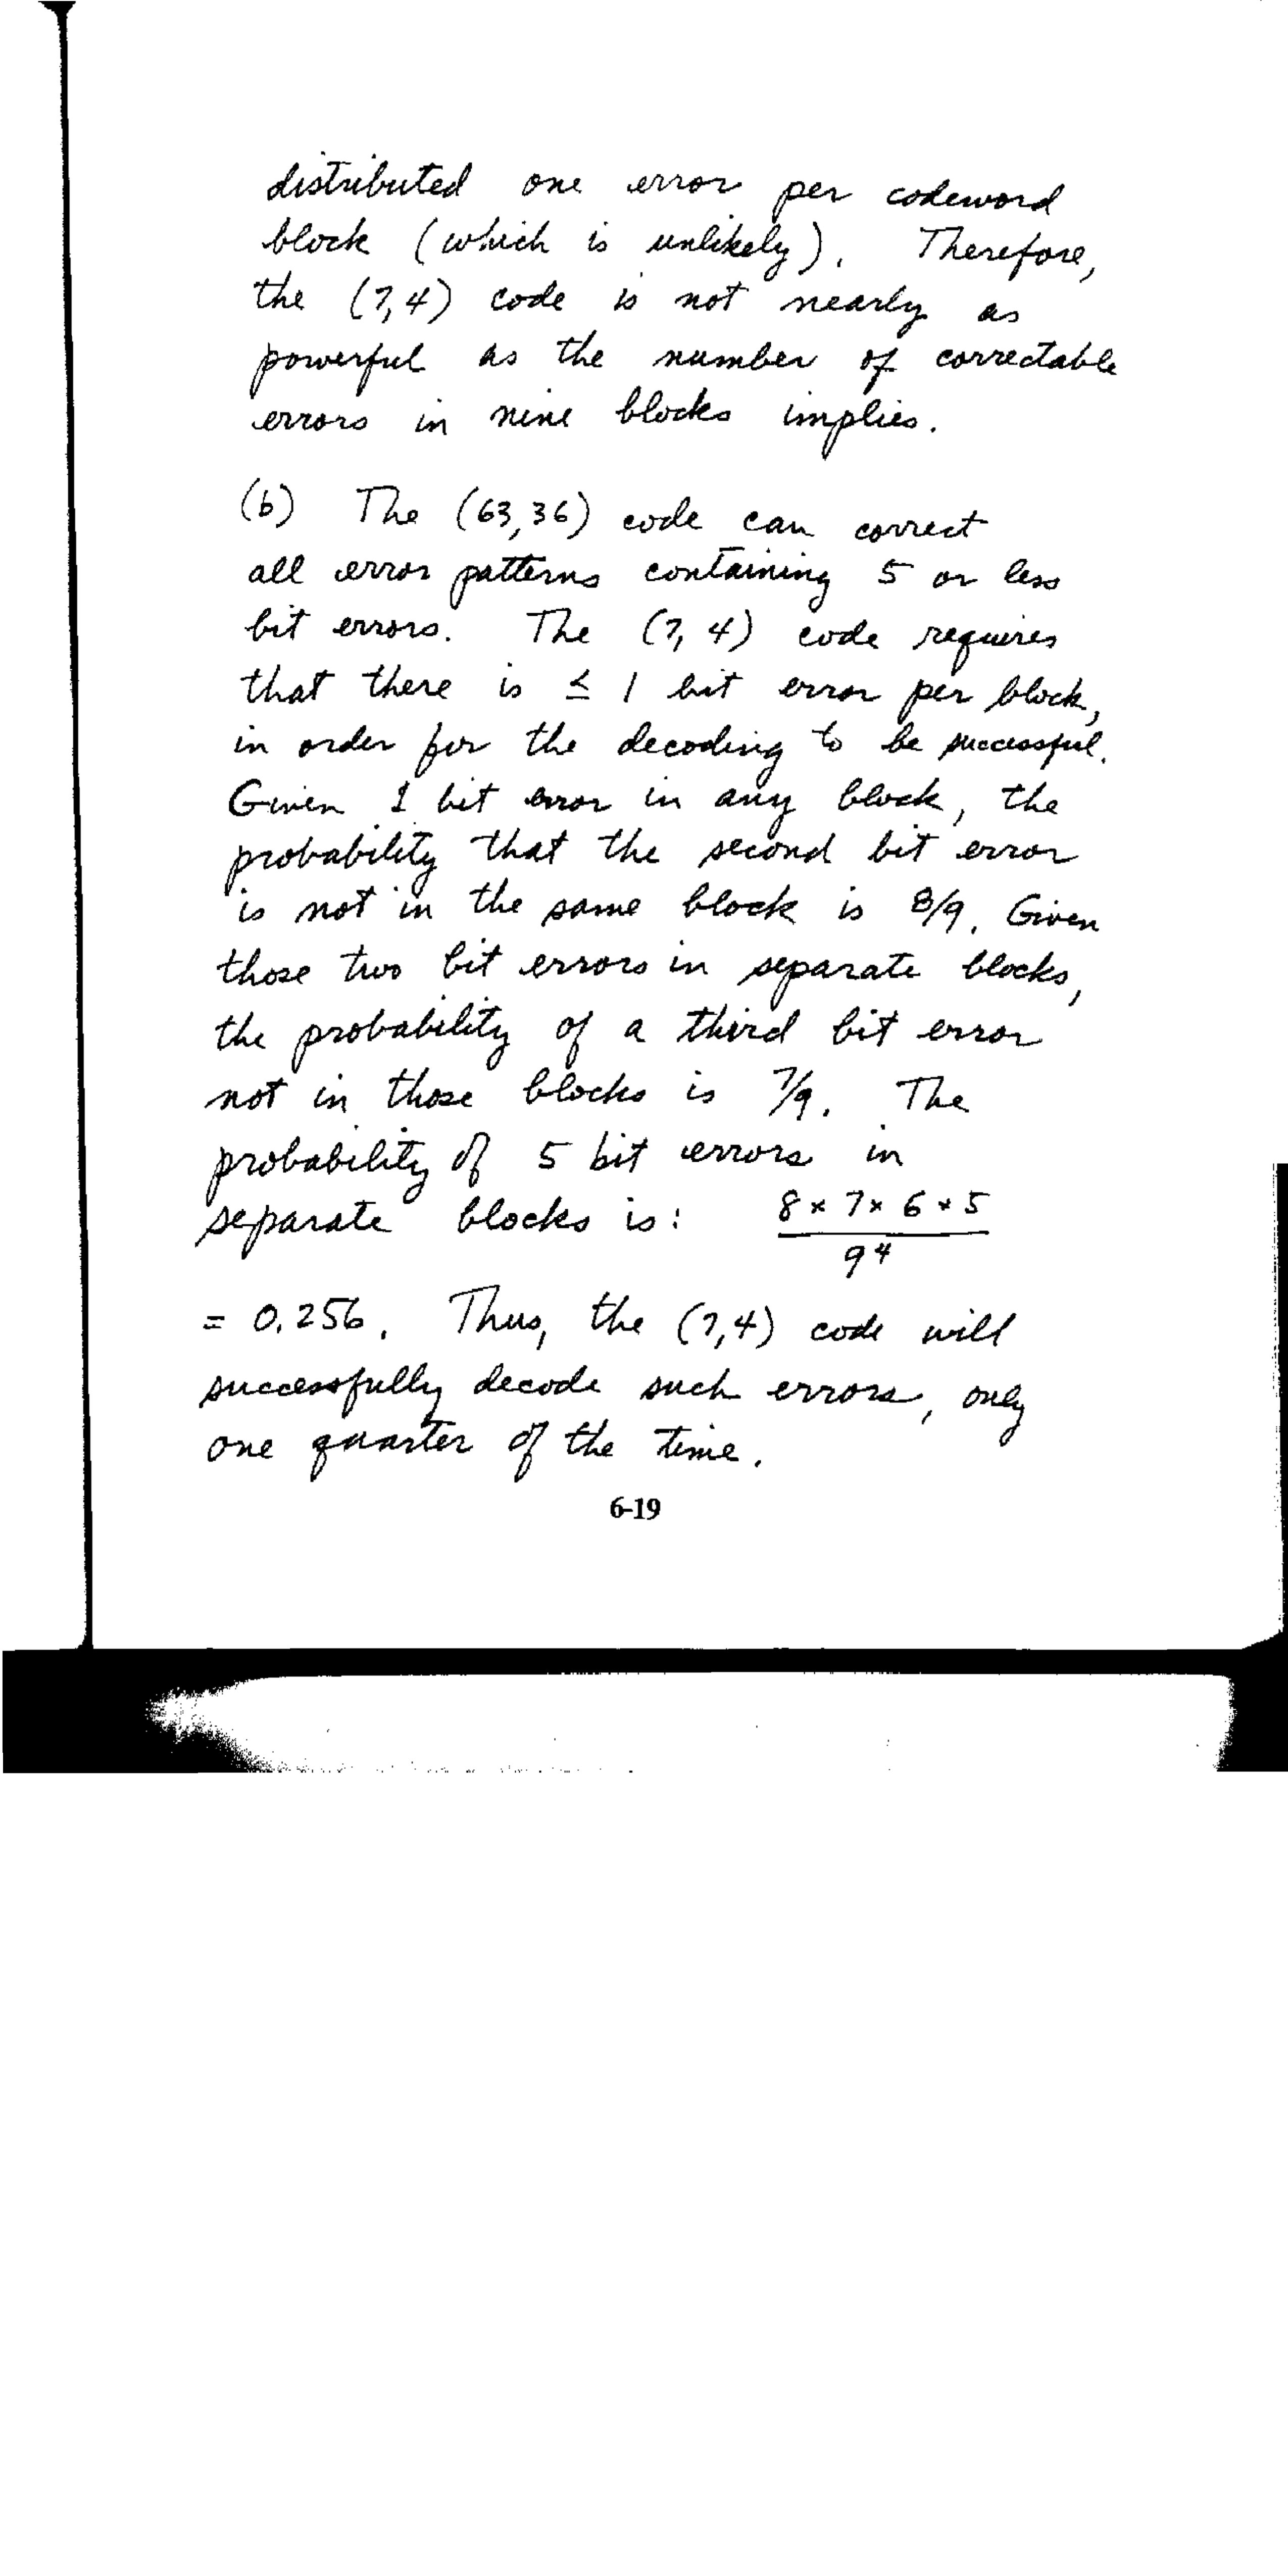 distributed one error per codeword
block (which is unlikely). Therefore,
the (7,4) code is not nearly as
powerful as the number of correctable
errors in nine blocks implies.
(b) The (63,36) code can correct
all error patterns containing 5 or less
bit errors. The (7,4) code requires
that there is ≤ 1 bit error per block,
in order for the decoding to be successful.
Given 1 bit error in any block, the
probability that the second bit error
is not in the same block is 8/9. Given
those two bit errors in separate blocks,
the probability of a third bit error
not in those blocks is 7/9. The
probability of 5 bit errors in
separate blocks is: 8 × 7 × 6 × 5
9⁴
= 0.256. Thus, the (7,4) code will
successfully decode such errors, only
one quarter of the time.
6-19